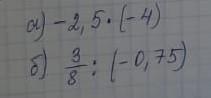 а) -2,5 · (-4)
б) 3/8 : (-0,75)